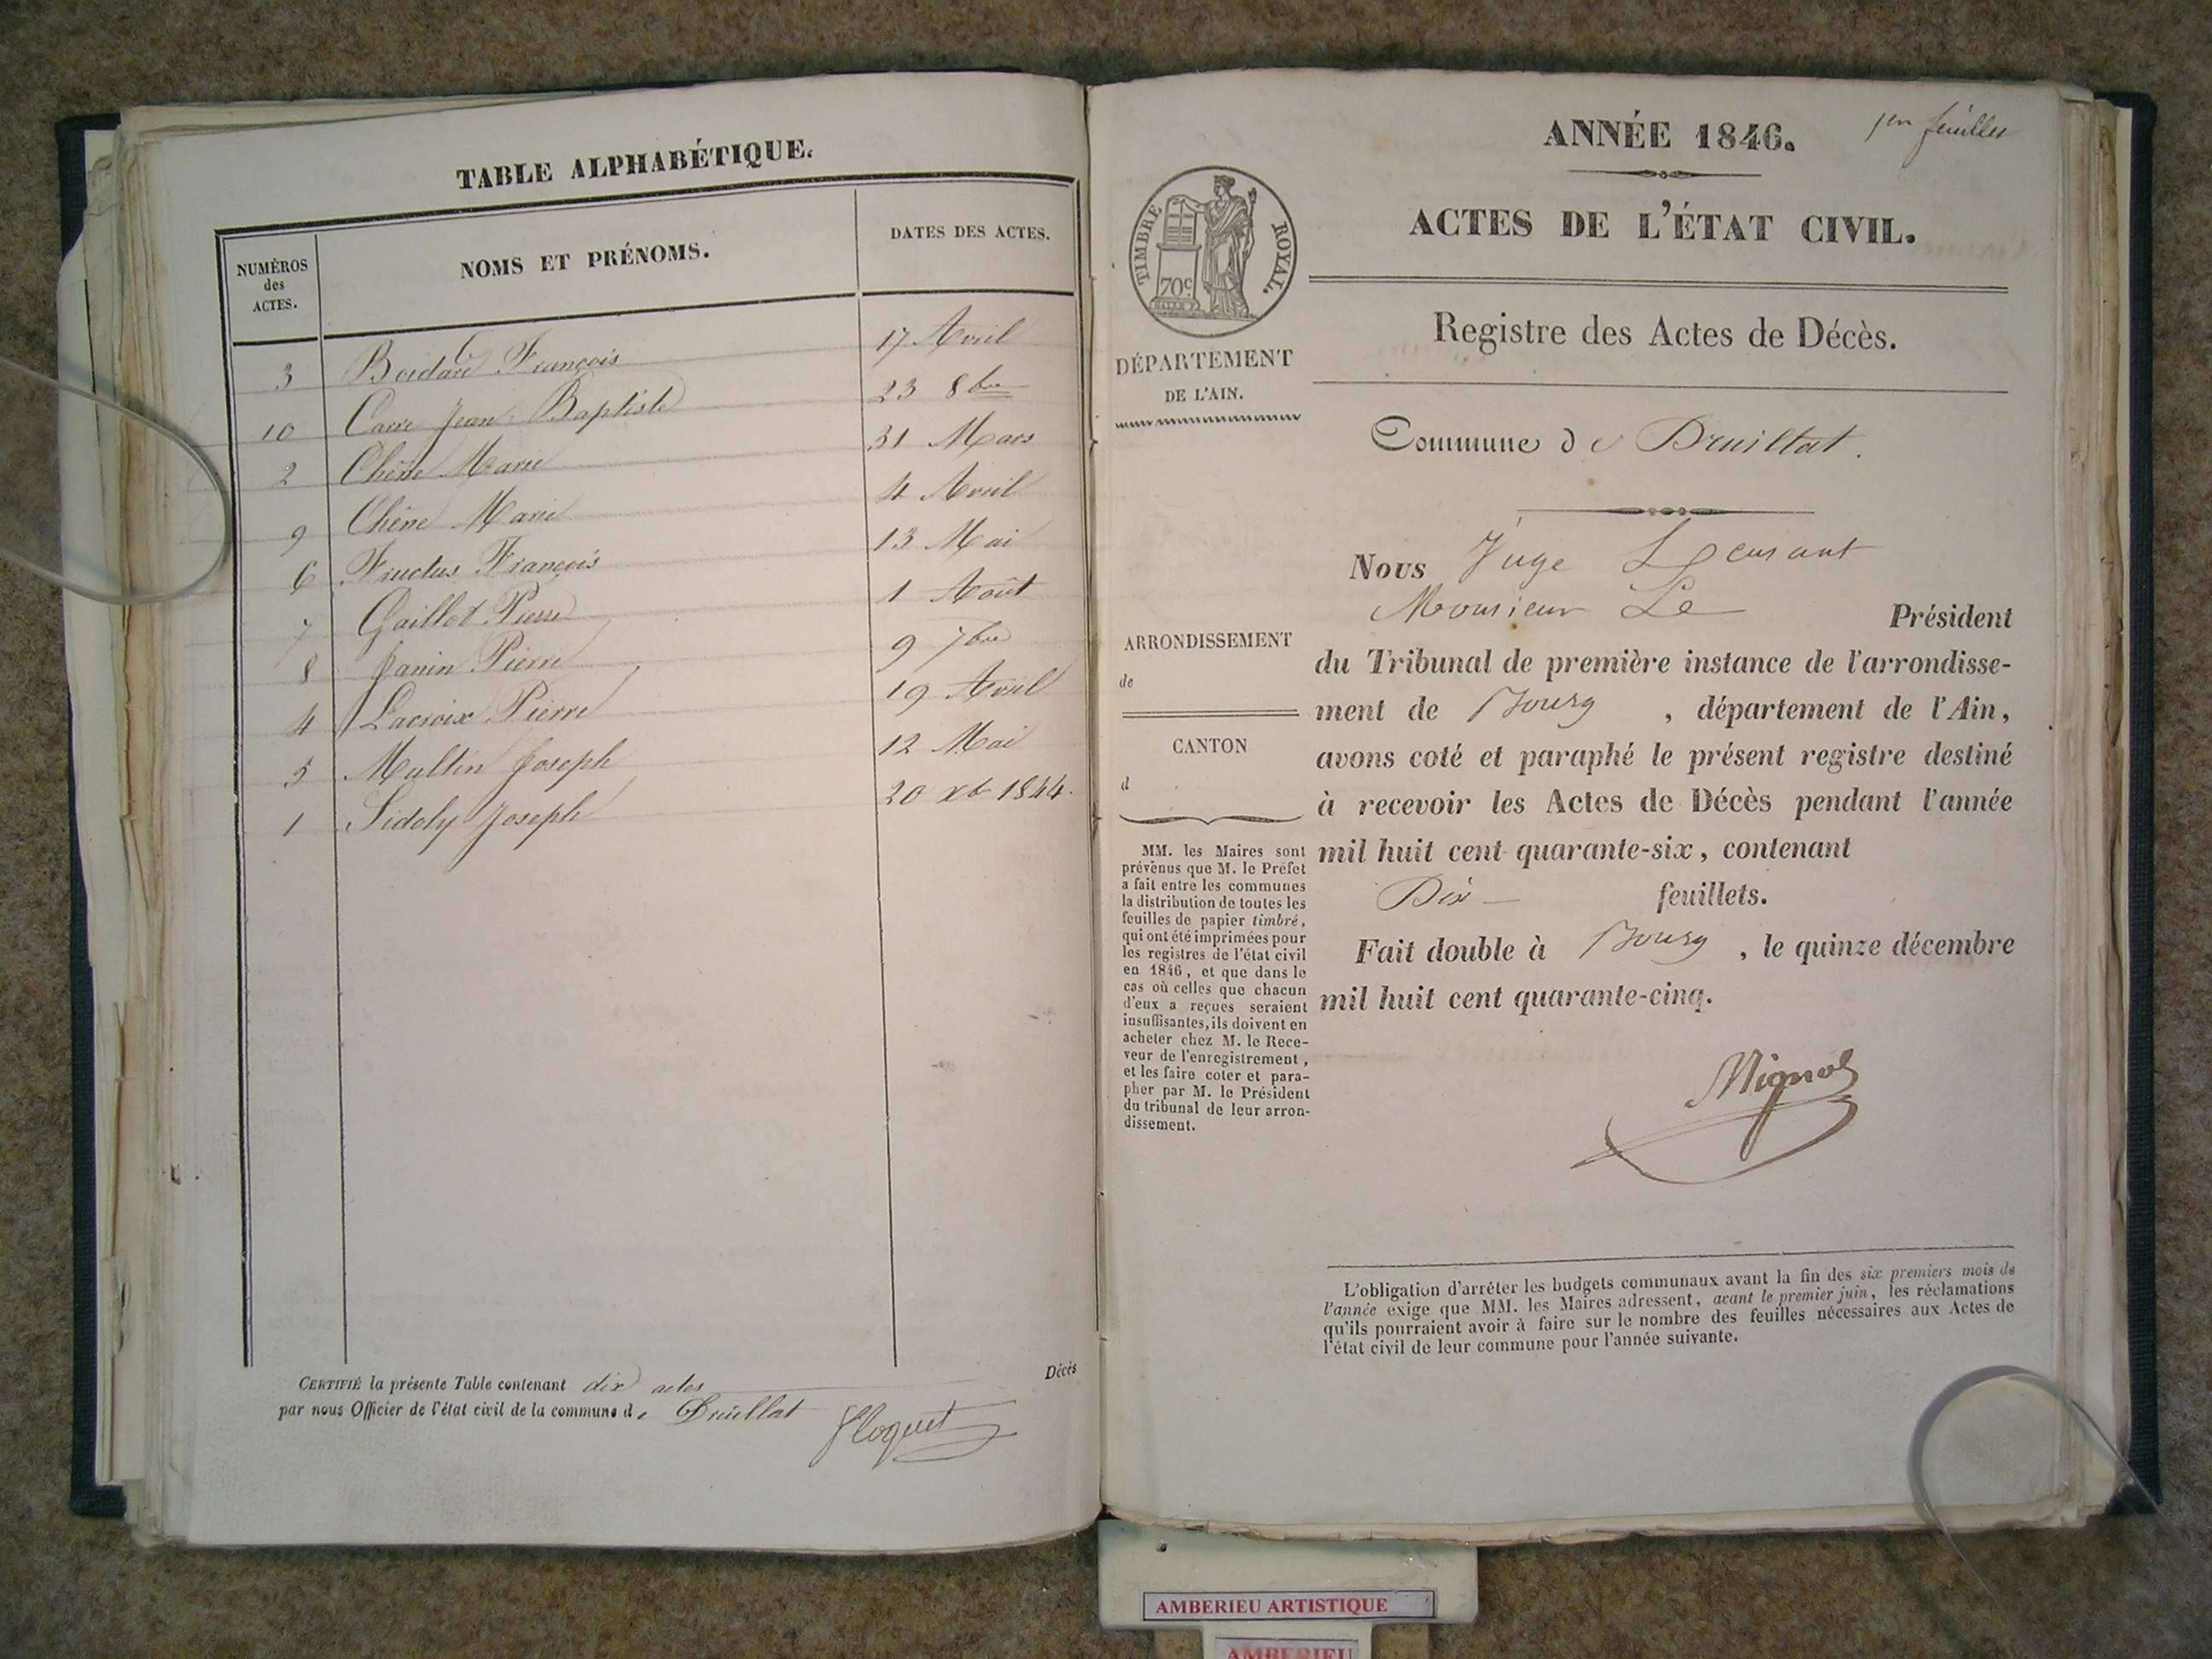 TABLE ALPHABÉTIQUE.
NUMÉROS des ACTES.
NOMS ET PRÉNOMS.
DATES DES ACTES.
3 François 17 Avril
10 Carre Jean-Baptiste 23 8bre
2 Chêne Marie 31 Mars
9 Chêne Marie 4 Avril
6 Fructus François 13 Mai
7 Gaillot Pierre 1 Août
8 Janin Pierre 9 7bre
4 Lacroix Pierre 19 Avril
5 Multin Joseph 12 Mai
1 Sidoly Joseph 20 xb 1844.
Décès
CERTIFIÉ la présente Table contenant dix actes
par nous Officier de l'état civil de la commune de Druillat
Floquet
ANNÉE 1846.
1er feuillet
ACTES DE L'ÉTAT CIVIL.
TIMBRE ROYAL.
70c
Registre des Actes de Décès.
DÉPARTEMENT
DE L'AIN.
Commune de Druillat.
Nous Juge
Monsieur Le Président
du Tribunal de première instance de l'arrondisse-
ment de Bourg, département de l'Ain,
avons coté et paraphé le présent registre destiné
à recevoir les Actes de Décès pendant l'année
mil huit cent quarante-six, contenant
Dix feuillets.
Fait double à Bourg, le quinze décembre
mil huit cent quarante-cinq.
ARRONDISSEMENT
de
CANTON
d
MM. les Maires sont
prévenus que M. le Préfet
a fait entre les communes
la distribution de toutes les
feuilles de papier timbré,
qui ont été imprimées pour
les registres de l'état civil
en 1846, et que dans le
cas où celles que chacun
d'eux a reçues seraient
insuffisantes, ils doivent en
acheter chez M. le Rece-
veur de l'enregistrement,
et les faire coter et para-
pher par M. le Président
du tribunal de leur arron-
dissement.
L'obligation d'arrêter les budgets communaux avant la fin des six premiers mois de
l'année exige que MM. les Maires adressent, avant le premier juin, les réclamations
qu'ils pourraient avoir à faire sur le nombre des feuilles nécessaires aux Actes de
l'état civil de leur commune pour l'année suivante.
AMBERIEU ARTISTIQUE
AMBERIEU